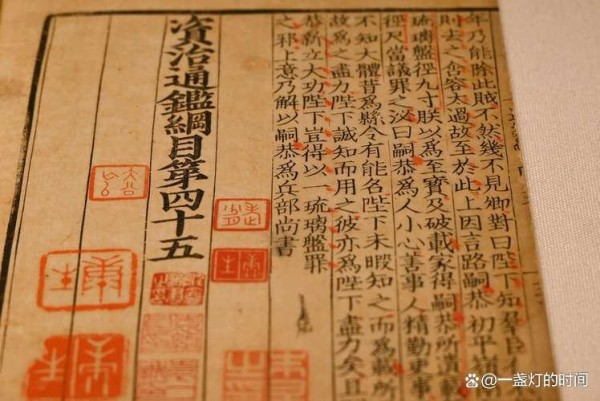 年乃能除此賊不然幾不見卿對曰陛下知羣臣
則去之含容太過故至於此上因言路嗣恭初平嶺南
琉璃盤徑九寸朕以爲至寶及破載家得嗣恭所遺載
徑尺當議罪之泌曰嗣恭爲人小心善事人精勤吏事
不知大體昔爲縣令有能名陛下未暇知之而爲載所
故爲之盡力陛下誠知而用之彼亦爲陛下盡力矣且
恭新立大功陛下豈得以一琉璃盤罪
之邪上意乃解以嗣恭爲兵部尚書
資治通鑑綱目第四十五
@一盏灯的时间